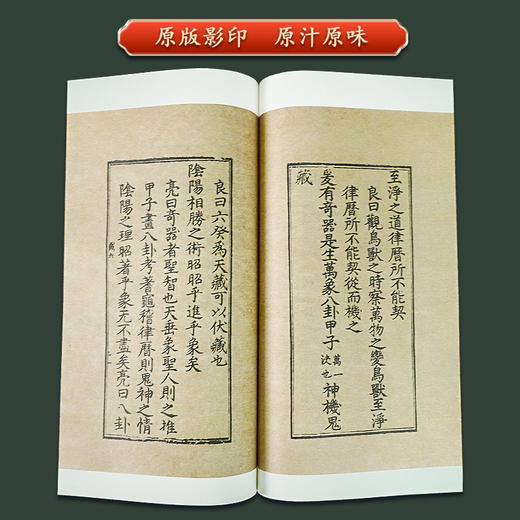 原版影印 原汁原味
至淨之道律曆所不能契
良曰觀鳥獸之時察萬物之變鳥獸至淨
律曆所不能契從而機之
爰有奇器是生萬象八卦甲子 萬一訣也 神機鬼
藏
良曰六癸為天藏可以伏藏也
陰陽相勝之術昭昭乎進乎象矣
亮曰奇器者聖智也天垂象聖人則之推
甲子畫八卦考蓍龜稽律曆則鬼神之情
陰陽之理昭著乎象无不盡矣亮曰八卦